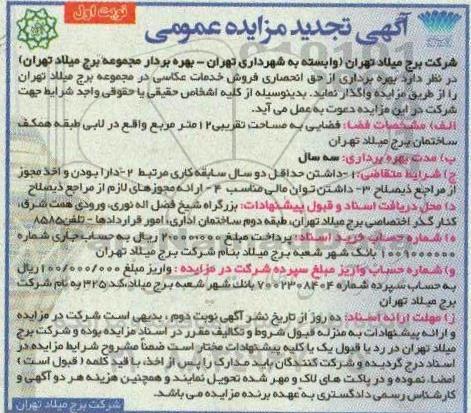 نوبت اول
آگهی تجدید مزایده عمومی
شرکت برج میلاد تهران (وابسته به شهرداری تهران - بهره بردار مجموعه برج میلاد تهران)
در نظر دارد بهره برداری از حق انحصاری فروش خدمات عکاسی در مجموعه برج میلاد تهران
را از طریق مزایده واگذار نماید. بدینوسیله از کلیه اشخاص حقیقی یا حقوقی واجد شرایط جهت
شرکت در این مزایده دعوت به عمل می آید.
الف) مشخصات فضا: فضایی به مساحت تقریبی ۱۲ متر مربع واقع در لابی طبقه همکف
ساختمان برج میلاد تهران
ب) مدت بهره برداری: سه سال
ج) شرایط متقاضی: ۱-داشتن حداقل دو سال سابقه کاری مرتبط ۲-دارا بودن و اخذ مجوز
از مراجع ذیصلاح ۳- داشتن توان مالی مناسب ۴ - ارائه مجوزهای لازم از مراجع ذیصلاح
د) محل دریافت اسناد و قبول پیشنهادات: بزرگراه شیخ فضل اله نوری، ورودی همت شرق،
کنار گذر اختصاصی برج میلاد تهران، طبقه دوم ساختمان اداری، امور قراردادها - تلفن ۸۵۸۵
ه) شماره حساب خرید اسناد: پرداخت مبلغ ۲۰۰/۰۰۰ ریال به حساب جاری شماره
بانک شهر شعبه برج میلاد بنام شرکت برج میلاد تهران
و) شماره حساب واریز مبلغ سپرده شرکت در مزایده : واریز مبلغ ۱۰۰/۰۰۰/۰۰۰ ریال
به حساب سپرده شماره ۷۰۰۲۳۰۸۴۰۴ بانک شهر شعبه برج میلاد، کد ۳۲۵ به نام شرکت
برج میلاد تهران
ز) مهلت ارائه اسناد: ده روز از تاریخ نشر آگهی نوبت دوم ، بدیهی است شرکت در مزایده
و ارائه پیشنهادات به منزله قبول شروط و تکالیف مقرر در اسناد مزایده بوده و شرکت برج
میلاد تهران در رد یا قبول یک یا کلیه پیشنهادات مختار است ضمناً مشروح شرایط مزایده در
اسناد درج گردیده و شرکت کنندگان باید مدارک را پس از اخذ، با قید کلمه ( قبول است )
امضا، نموده و در پاکت های لاک و مهر شده تحویل نمایند و همچنین هزینه هر دو آگهی و
کارشناس رسمی دادگستری به عهده برنده مزایده می باشد.
شرکت برج میلاد تهران